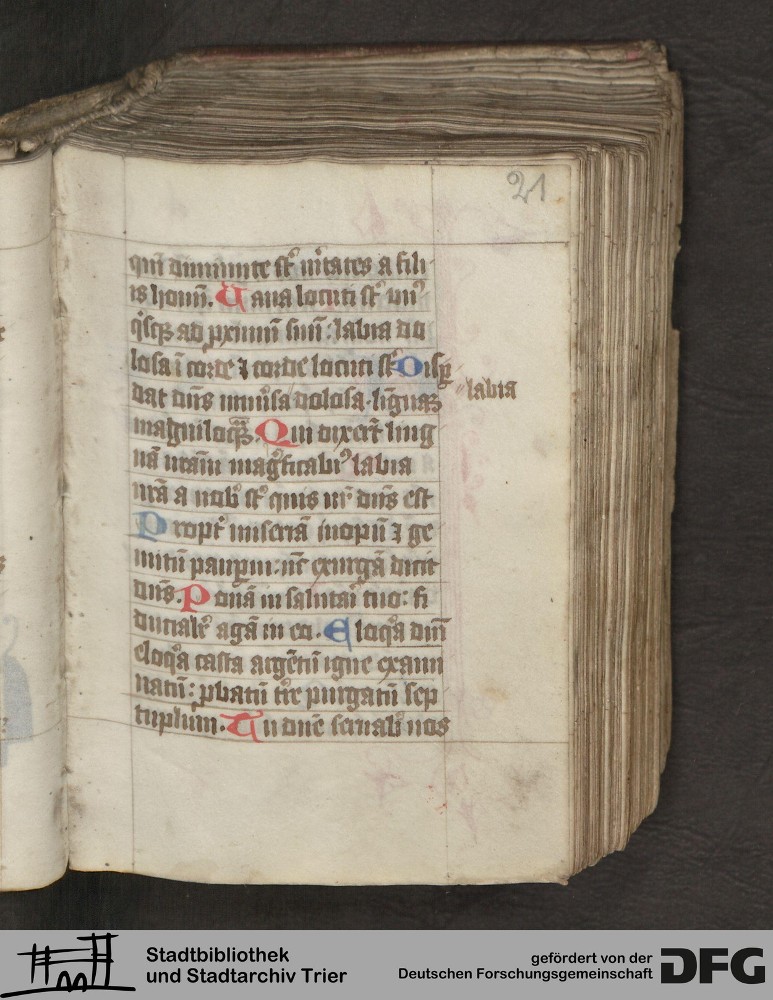 21
qm̄ diminute st̄ ũitates a fili
is homı̄. Vana locuti st̄ unꝰ
qˢsqꝫ ad ꝓximū suū: labia do
losa ī corde ⁊ corde locuti st̄ Disꝑ
dat dn̄s uniũsa dolosa · lı̄guaꝫ
labia
magniloqᷓꝫ. Qui dixer̄t ling
uā nr̄am magͦficabıꝰ labia
nr̄a a nob̄ st̄ quis nr̄ dn̄s est
Propt̄ miseriā inopū ⁊ ge
mitū pauꝑum: nc̄ exurgā dicit
dn̄s. Ponā in salutarı̄ tuo: fi
ducialit̄ agā in eo. Eloqᷓa dnı̄
eloqᷓa casta argētū igne exami
natū: ꝓbatū tr̄e purgatū sep
tuplum. Tu dn̄e seruab̄ nos
Stadtbibliothek
und Stadtarchiv Trier
gefördert von der
Deutschen Forschungsgemeinschaft
DFG